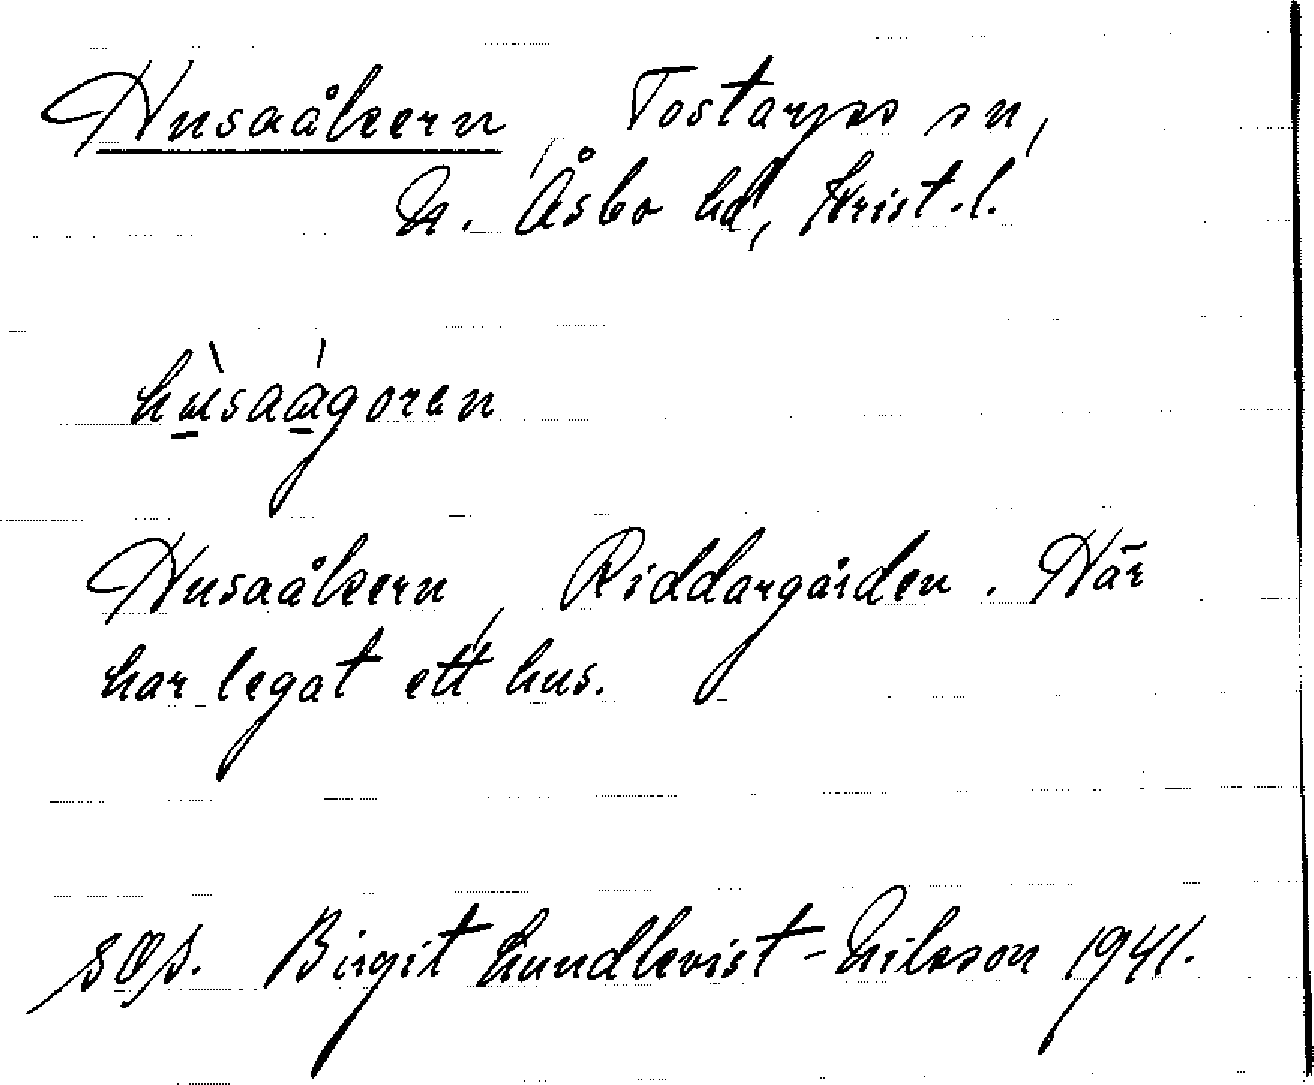 Husaåkern, Tostarps sn,
N. Åsbo hd, Krist. l.
hùsaágoren
Husaåkern, Riddargården. Här
har legat ett hus.
Birgit Lundkvist-Nilsson 1941.